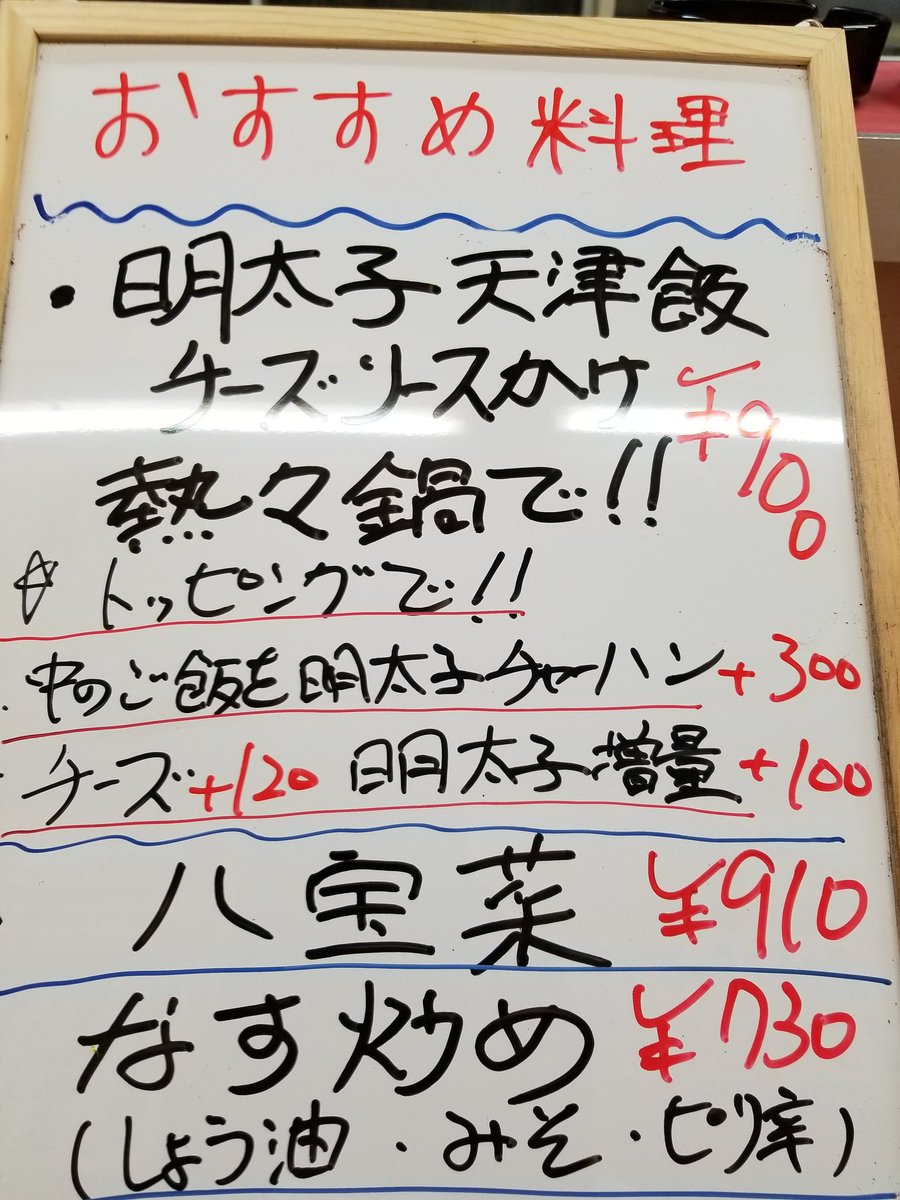 おすすめ料理
・明太子天津飯
チーズソースかけ ¥900
熱々鍋で!!
☆トッピングで!!
・中のご飯を明太子チャーハン+300
・チーズ+120 明太子増量+100
・八宝菜 ¥910
なす炒め ¥730
(しょう油・みそ・ピリ辛)